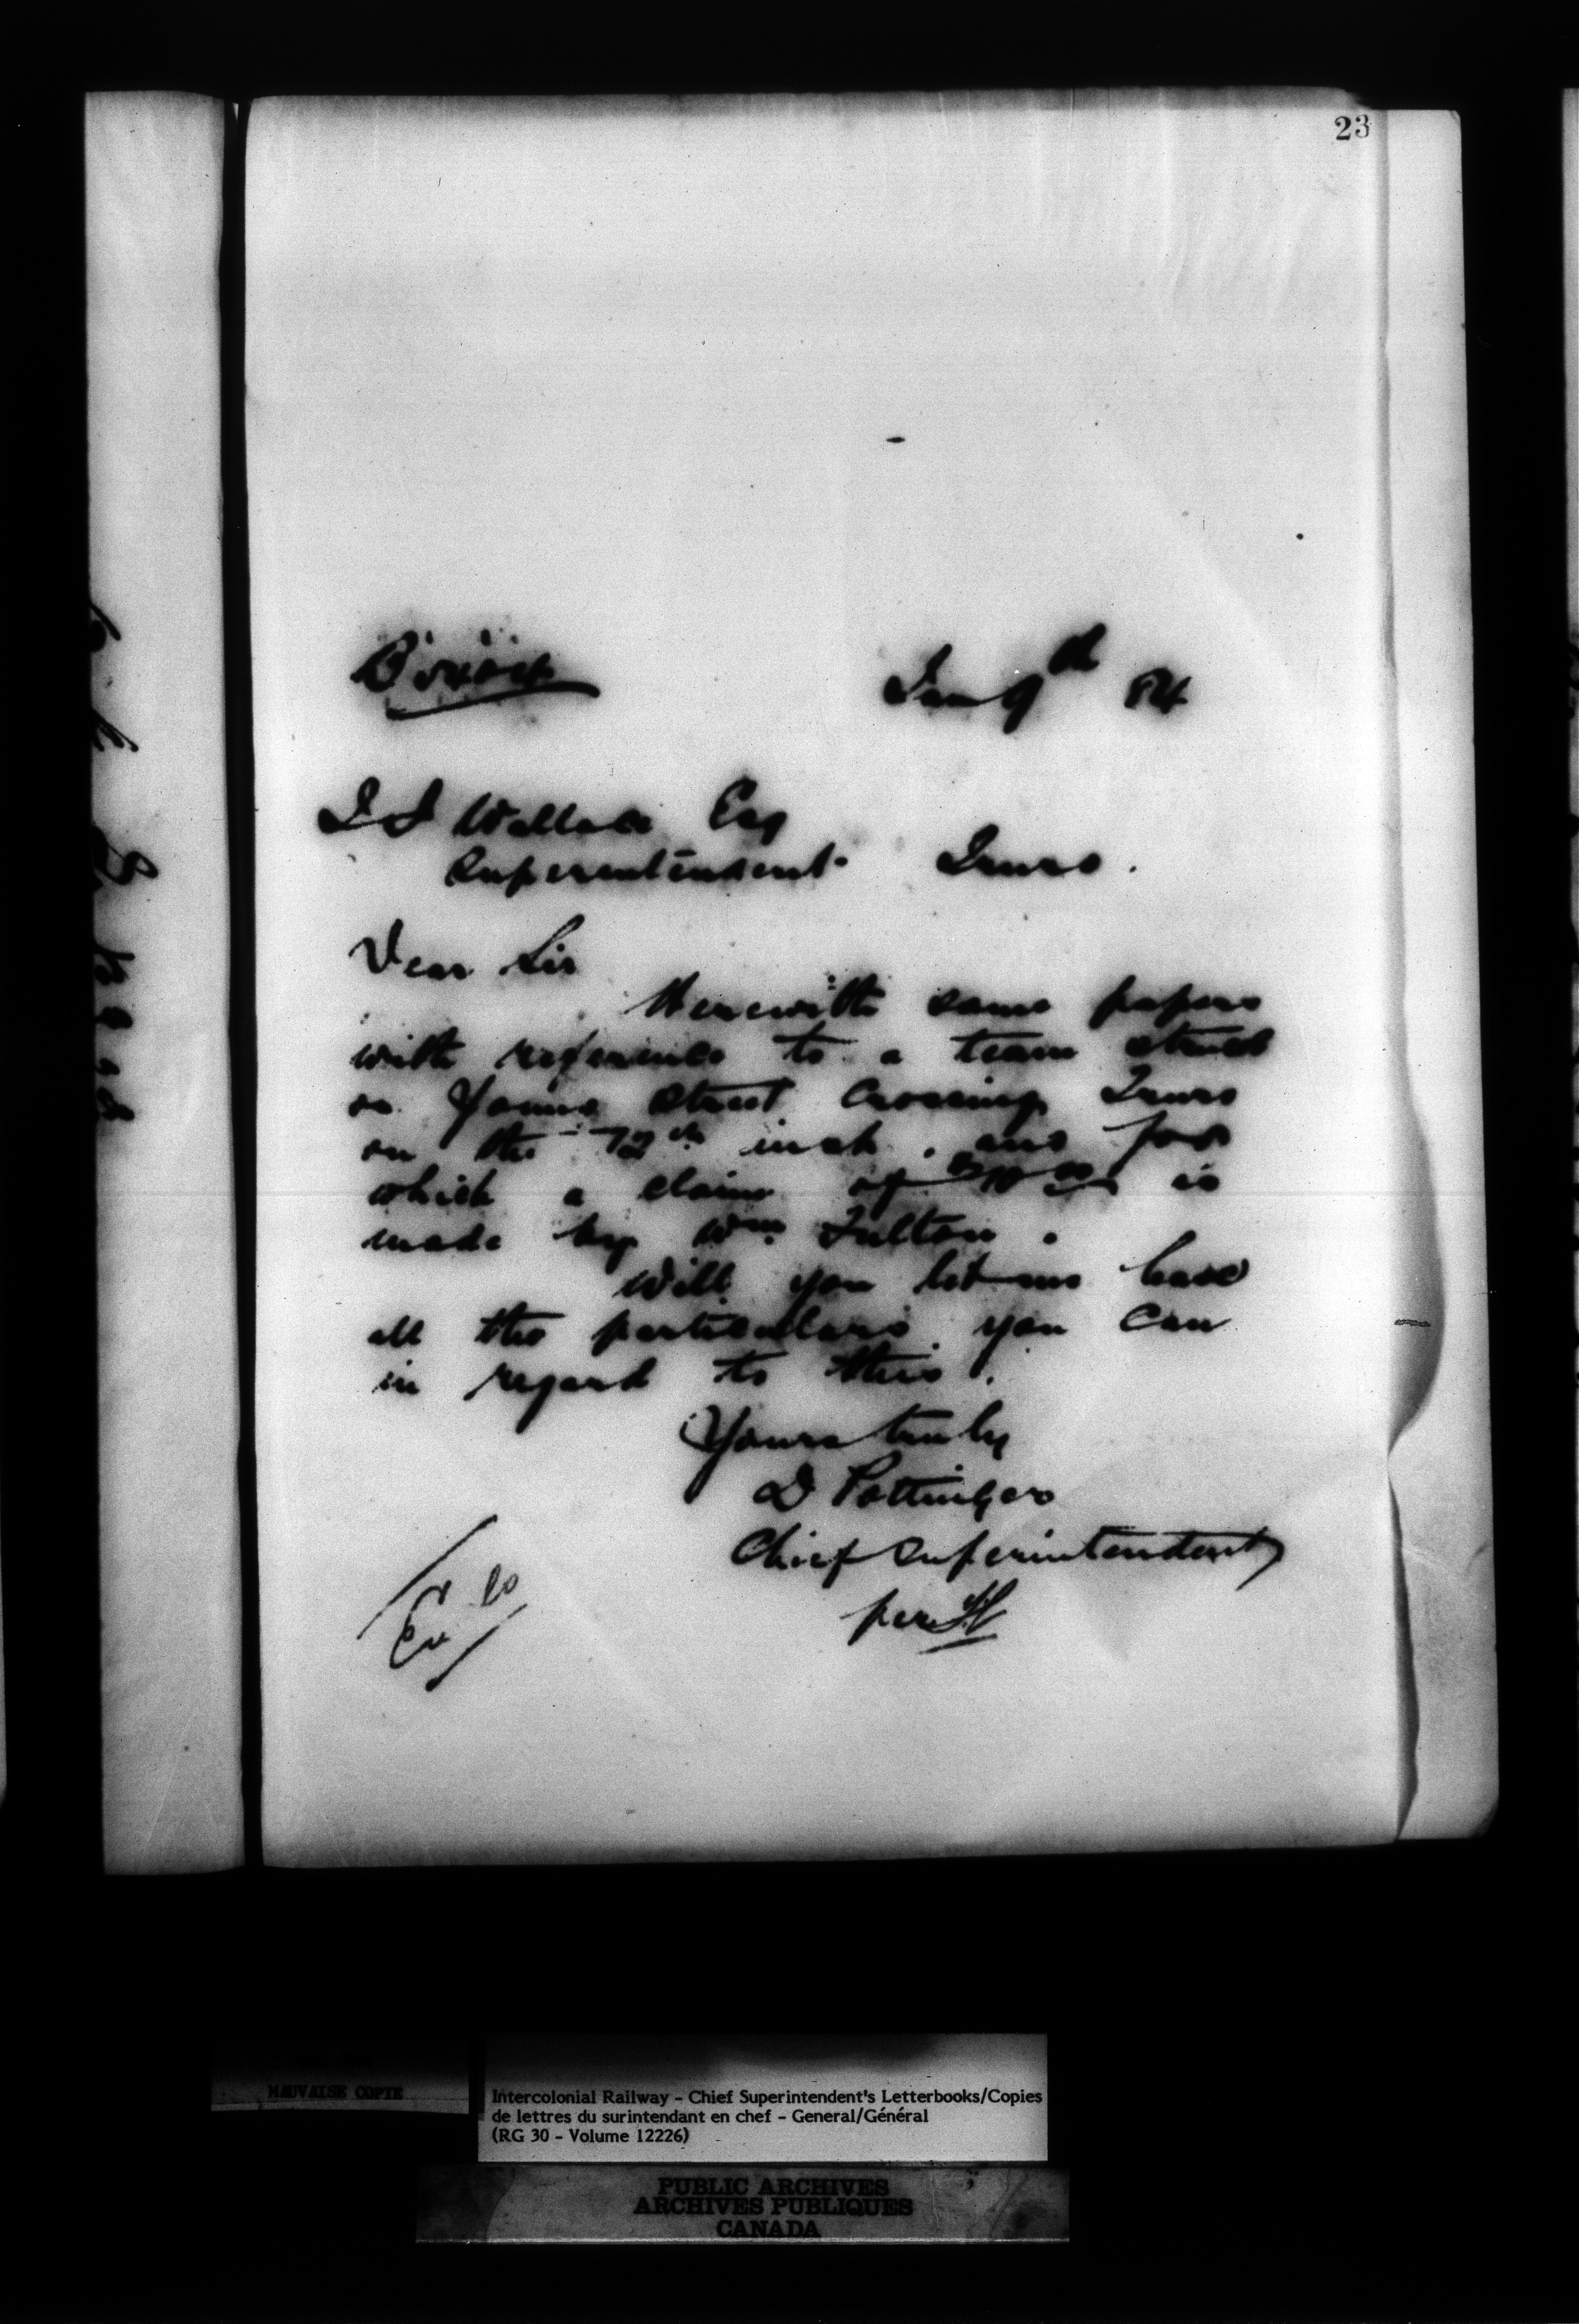 23
Jan 9th 84
J J Wallace Esq
Superintendent Truro.
Dear Sir
Herewith some papers
with reference to a team struck
on Young Street Crossing Truro
on the inst. and for
which a claim of is
made by Wm Fulton.
Will you let me have
all the particulars you can
in regard to this.
Yours truly
D Pottinger
Chief Superintendent
per
MAUVAISE COPIE
Intercolonial Railway - Chief Superintendent's Letterbooks/Copies
de lettres du surintendant en chef - General/Général
(RG 30 - Volume 12226)
PUBLIC ARCHIVES
ARCHIVES PUBLIQUES
CANADA